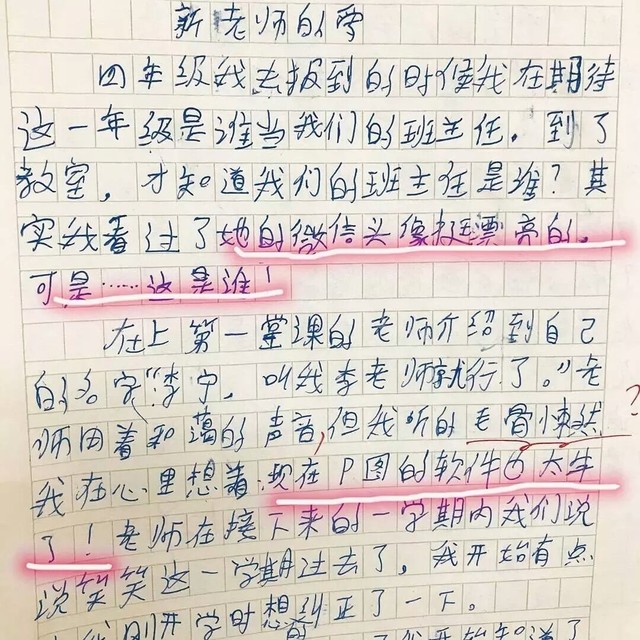 新老师的
四年级我去报到的时候我在期待
这一年级是谁当我们的班主任。到了
教室，才知道我们的班主任是谁？其
实我看过了她的微信头像挺漂亮的，
可是……这是谁！
在上第一堂课的老师介绍到自己
的名字“李宁，叫我李老师就行了。”老
师用着和蔼的声音，但我听的毛骨悚然
?
我在心里想着：现在P图的软件也太牛
了！老师在接下来的一学期内我们说
说笑笑这一学期过去了，我开始有点
我刚开学时想纠正了一下。
的